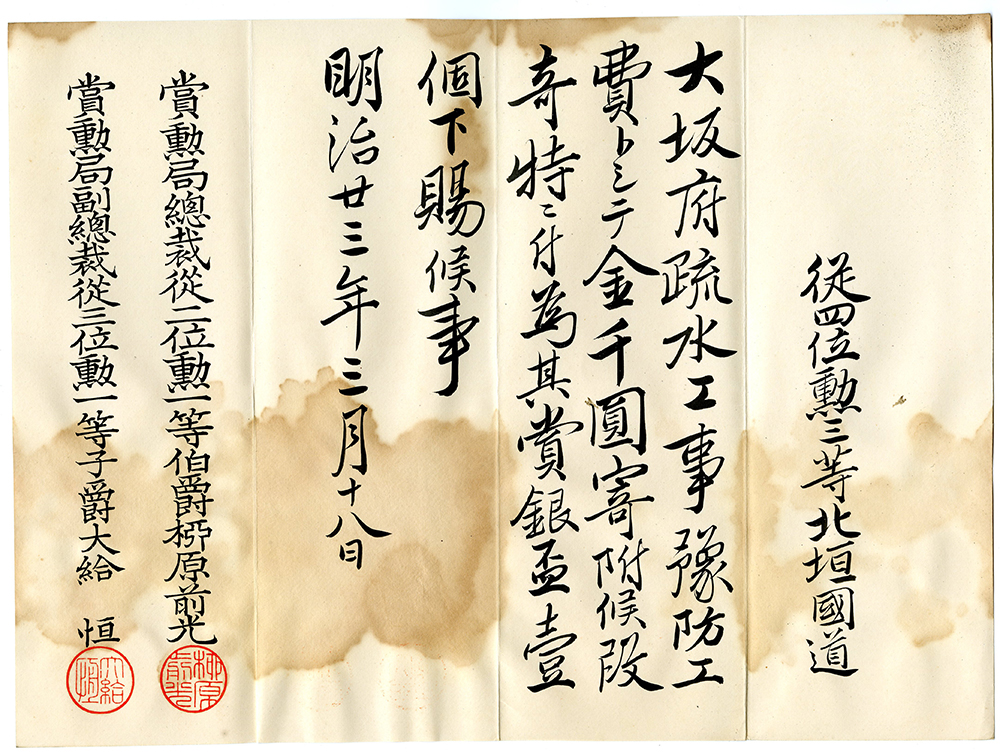 從四位勲三等北垣國道
大坂府疏水工事豫防工
費トシテ金千圓寄附候段
奇特ニ付為其賞銀盃壹
個下賜候事
明治廿三年三月十八日
賞勲局總裁從二位勲一等伯爵栁原前光
賞勲局副總裁從三位勲一等子爵大給 恒
栁原前光
大給恒